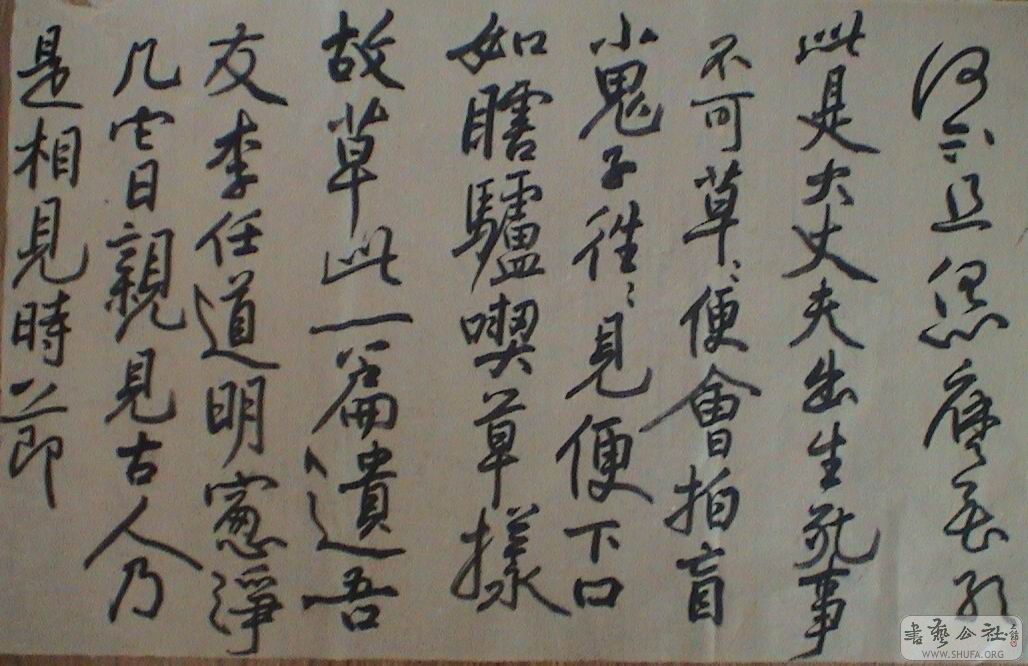 何不且恁麼
此是大丈夫出生死事
不可草〻便會拍盲
小鬼子往〻見便下口
如瞎驢喫草樣
故草此一篇遺吾
友李任道明窻淨
几它日親見古人乃
是相見時節
書藝公社
WWW.SHUFA.ORG